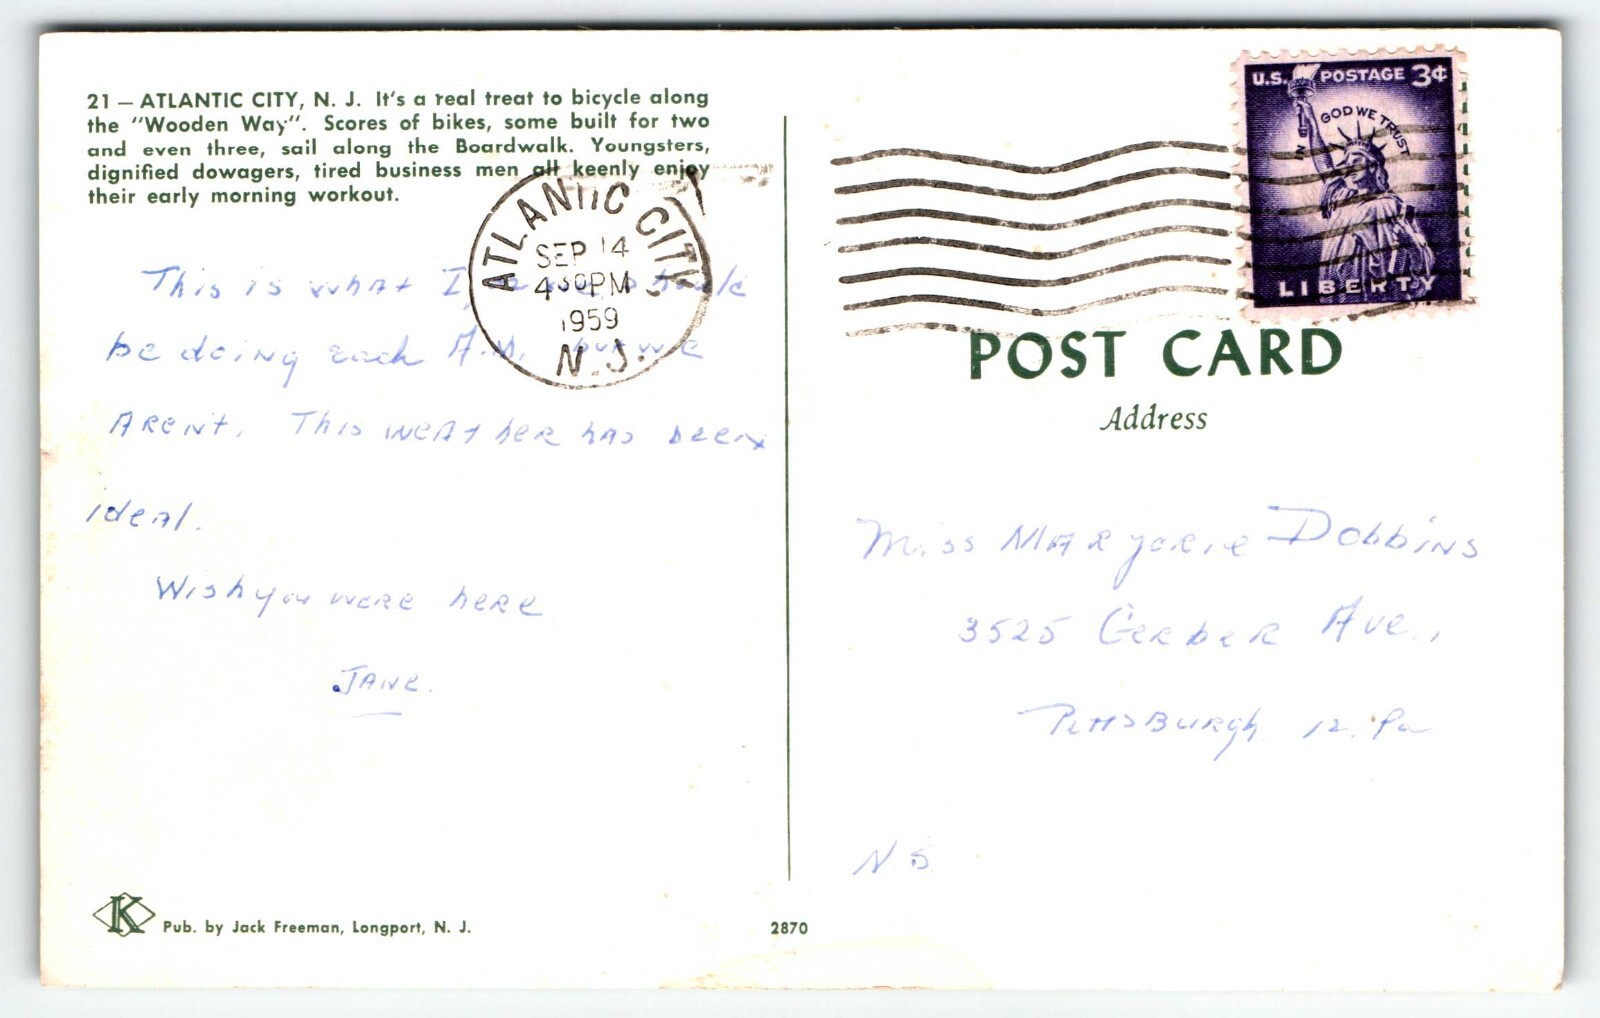 21 — ATLANTIC CITY, N. J. It's a real treat to bicycle along
the "Wooden Way". Scores of bikes, some built for two
and even three, sail along the Boardwalk. Youngsters,
dignified dowagers, tired business men all keenly enjoy
their early morning workout.
This is what I
be doing each A.M. but we
ARENT. This weather has been
ideal.
Wish you were here
JANE.
K
Pub. by Jack Freeman, Longport, N. J.
2870
ATLANTIC CITY
SEP 14
4 30 PM
1959
N.J.
U.S. POSTAGE 3¢
IN GOD WE TRUST
LIBERTY
POST CARD
Address
Miss Marjorie Dobbins
3525 Gerber Ave.,
Pittsburgh 12. Pa